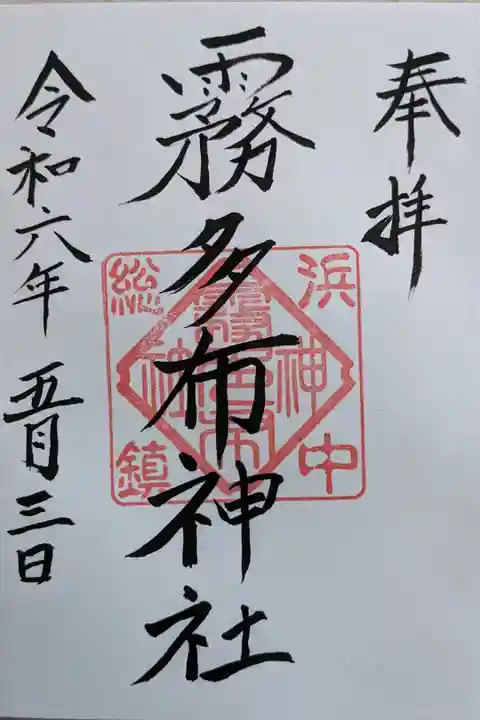 奉拝
霧多布神社
令和六年 五月三日
浜中
総鎮
神社